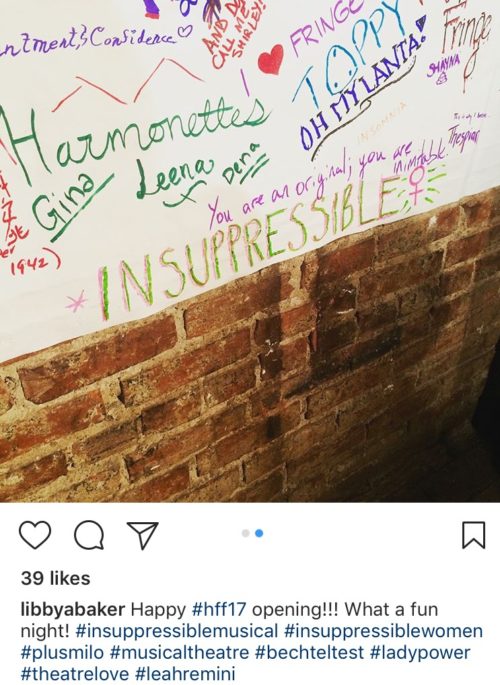 FRINGE
AND D
CALL ME
SHIRLEY!
ntment & Confidence
I
TOPPY
Fringe
OH MYLANTA!
SHAYNA
INSOMNIA
Harmonettes
Gina
Leena
Dena
Thespian
You are an original; you are
inimitable.
INSUPPRESSIBLE
1942)
39 likes
libbyabaker Happy #hff17 opening!!! What a fun
night! #insuppressiblemusical #insuppressiblewomen
#plusmilo #musicaltheatre #bechteltest #ladypower
#theatrelove #leahremini